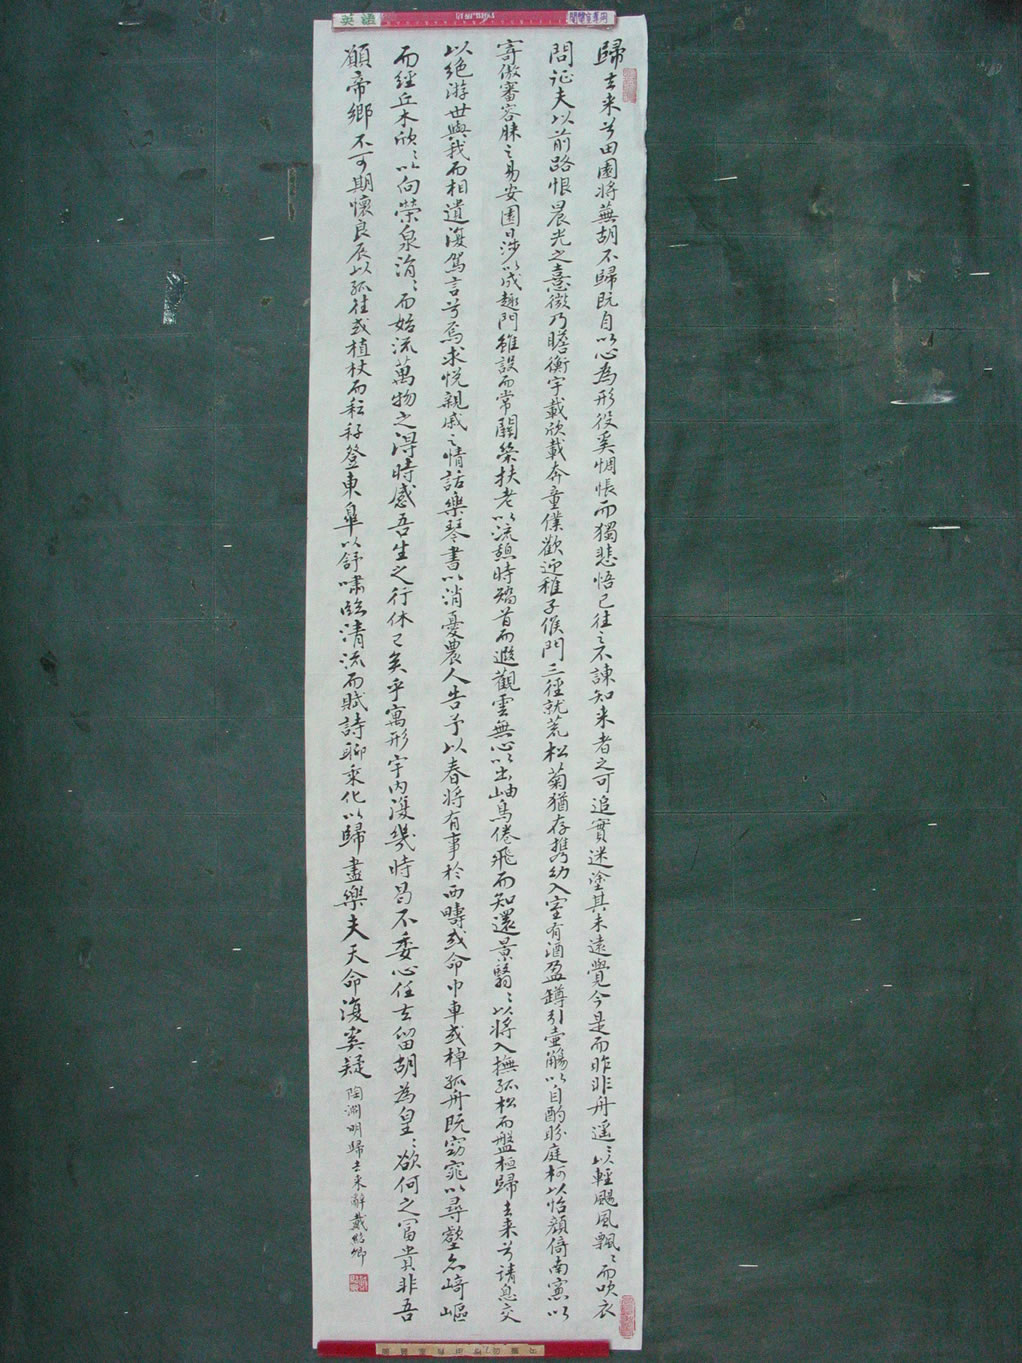 英語
歸去来兮田園將蕪胡不歸既自以心為形役奚惆悵而獨悲悟已往之不諫知来者之可追實迷塗其未遠覺今是而昨非舟遙遙以輕颺風飄飄而吹衣
問征夫以前路恨晨光之憙微乃瞻衡宇載欣載奔童僕歡迎稚子候門三徑就荒松菊猶存携幼入室有酒盈罇引壺觴以自酌眄庭柯以怡顏倚南窻以
寄傲審容膝之易安園日涉以成趣門雖設而常關策扶老以流憩時矯首而遐觀雲無心以出岫鳥倦飛而知還景翳翳以將入撫孤松而盤桓歸去来兮請息交
以絕游世與我而相遺復駕言兮焉求悅親戚之情話樂琴書以消憂農人告予以春將有事於西疇或命巾車或棹孤舟既窈窕以尋壑亦崎嶇
而經丘木欣欣以向榮泉涓涓而始流萬物之得時感吾生之行休已矣乎寓形宇內復幾時曷不委心任去留胡為皇皇欲何之富貴非吾
願帝鄉不可期懷良辰以孤往或植杖而耘耔登東皐以舒嘯臨清流而賦詩聊乘化以歸盡樂夫天命復奚疑
陶淵明歸去来辭戴紹卿